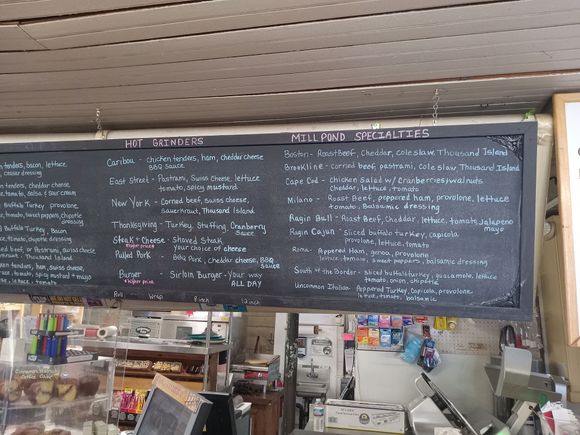 HOT GRINDERS
Caribou - chicken tenders, ham, cheddar cheese
BBQ sauce
East Street - Pastrami, Swiss Cheese, lettuce
tomato, spicy mustard
New York - Corned beef, Swiss cheese,
sauerkraut, Thousand Island
Thanksgiving - Turkey, Stuffing, Cranberry
Sauce
Steak + Cheese - Shaved Steak
*higher price Your choice of cheese
Pulled Pork - BBQ Pork, cheddar cheese, BBQ
sauce
Burger - Sirloin Burger - Your way
*higher price ALL DAY
MILLPOND SPECIALTIES
Boston - Roast Beef, Cheddar, Coleslaw, Thousand Island
Brookline - corned beef, pastrami, Coleslaw, Thousand Island
Cape Cod - chicken salad w/ cranberries/walnuts
cheddar, lettuce, tomato
Milano - Roast Beef, peppered ham, provolone, lettuce
tomato, Balsamic dressing
Ragin Bull - Roast Beef, Cheddar, lettuce, tomato, Jalapeno
mayo
Ragin Cajun - Sliced buffalo turkey, capicola
provolone, lettuce, tomato
Roma - Peppered Ham, genoa, provolone
lettuce, tomato, sweet peppers, balsamic dressing
South of the Border - Sliced buffalo turkey, guacamole, lettuce
tomato, onion, chipotle
Uncommon Italian - Peppered Turkey, capicola, provolone
lettuce, tomato, balsamic
tenders, bacon, lettuce
caesar dressing
tenders, cheddar cheese
tomato, salsa + sour cream
Buffalo Turkey, provolone
tomato, sweet peppers, chipotle
dressing
Buffalo Turkey, Bacon,
tomato, chipotle dressing
beef, or Pastrami, Swiss cheese
Thousand Island
tenders, ham, Swiss cheese,
tomato, spicy mustard + mayo
lettuce, tomato
Roll Wrap 8 inch 12 inch